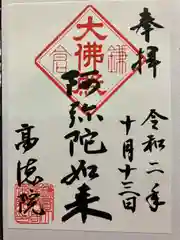 奉拝
令和二年
十月十三日
大佛殿
鎌倉
阿弥陀如来
高徳院